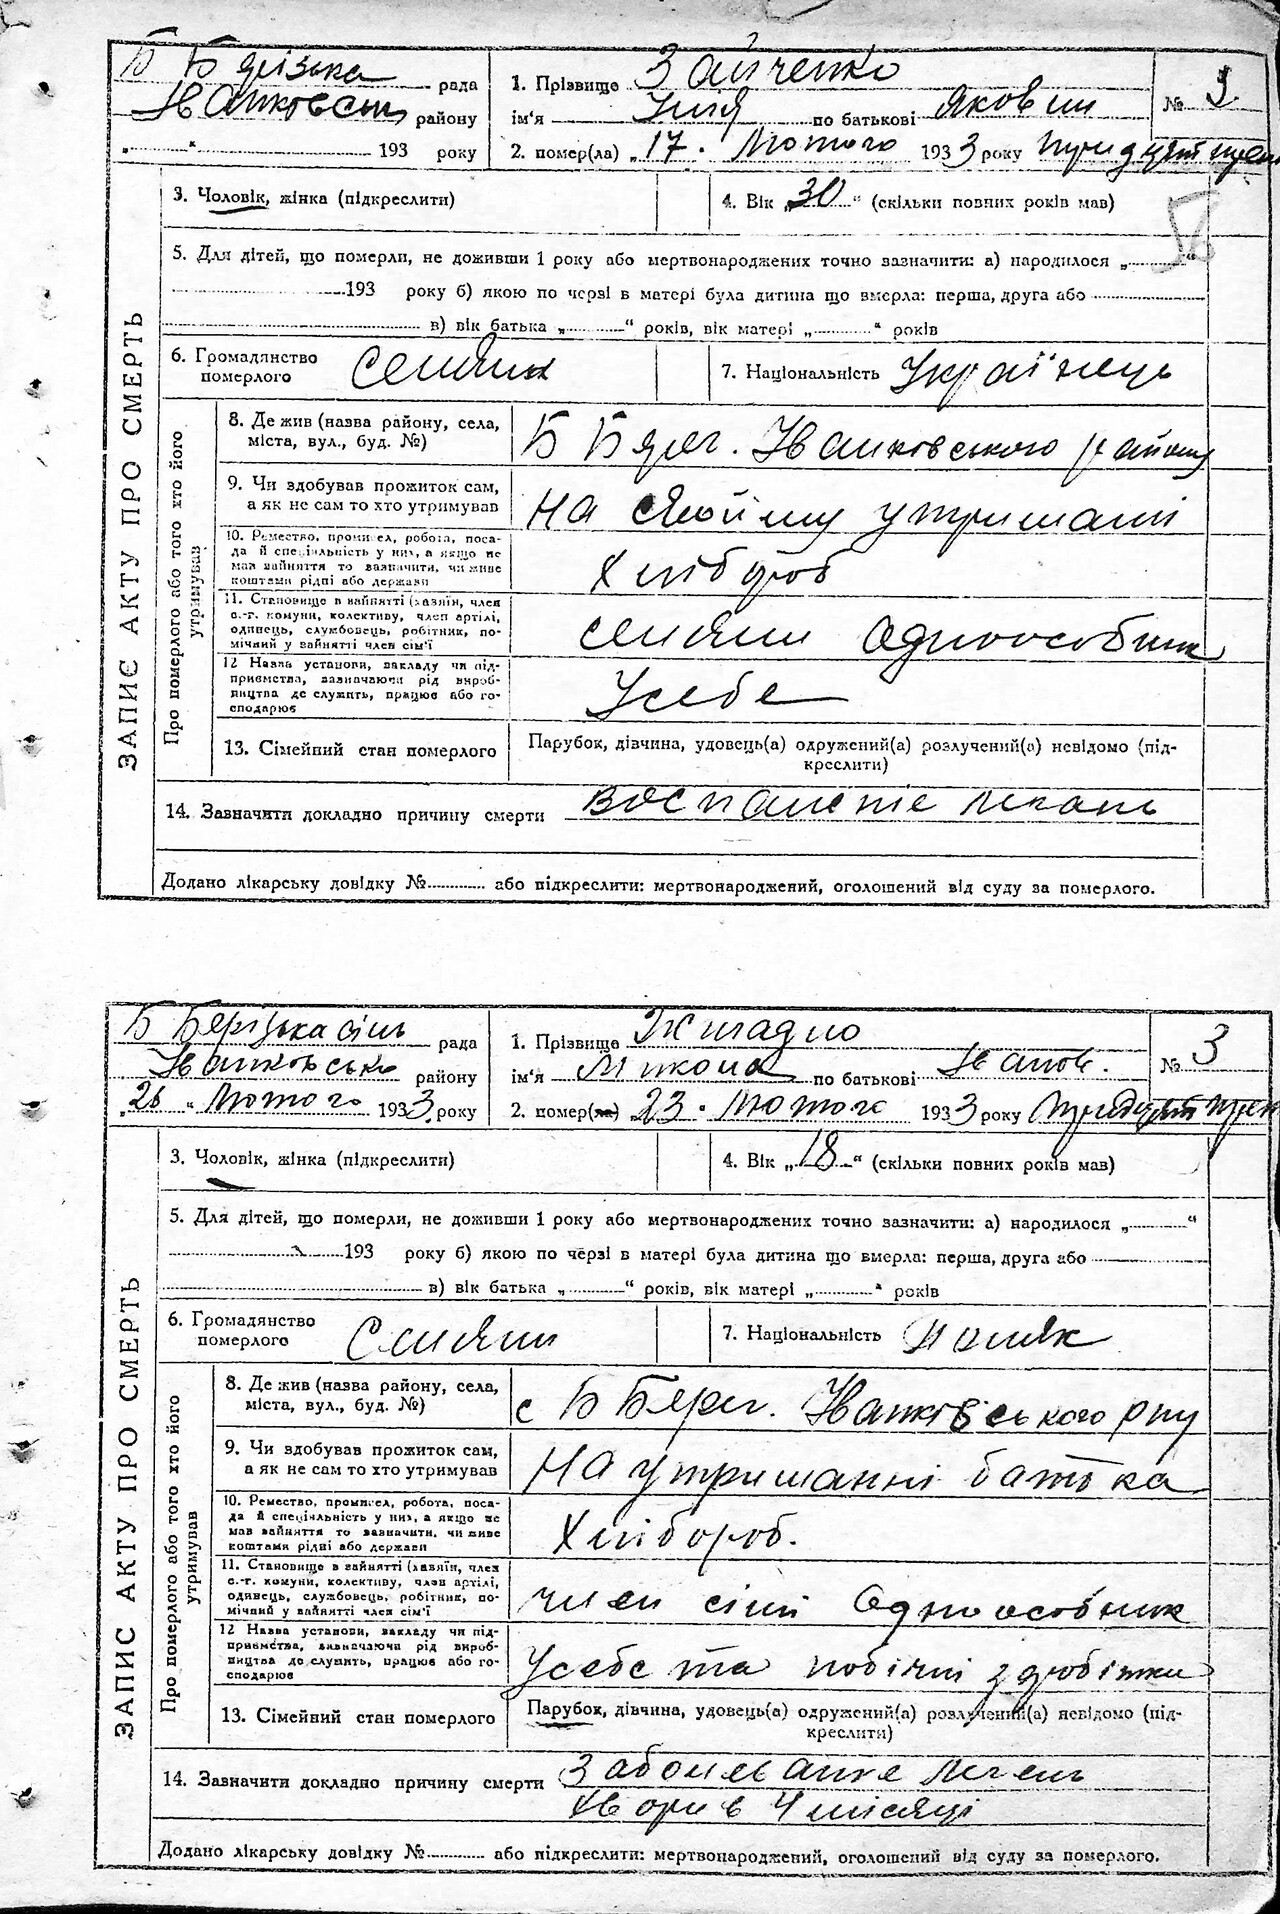 Б Бярізька рада
Іванковськ району
„ “ 193 року
1. Прізвище Зайченко
ім'я Ілія по батькові Яковл
2. помер(ла) „17. Лютого 1933 року тридцят трет
№ 3
3. Чоловік, жінка (підкреслити)
4. Вік „30“ (скільки повних років мав)
5. Для дітей, що померли, не доживши 1 року або мертвонароджених точно зазначити: а) народилося „ “
193 року б) якою по черзі в матері була дитина що вмерла: перша, друга або
в) вік батька „ “ років, вік матері „ “ років
6. Громадянство померлого Селянин
7. Національність Українець
ЗАПИС АКТУ ПРО СМЕРТЬ
Про померлого або того хто його утримував
8. Де жив (назва району, села,
міста, вул., буд. №)
Б Бярег. Іванковського району
9. Чи здобував прожиток сам,
а як не сам то хто утримував
на свойму утриманні
10. Ремество, промисел, робота, поса-
да й спеціяльність у них, а якщо не
мав зайняття то зазначити, чи живе
коштами рідні або держави
Хлібороб
11. Становище в зайнятті (хазяїн, член
с.-г. комуни, колективу, член артілі,
одинець, службовець, робітник, по-
мічний у зайнятті член сім'ї
селянин одноособник
12 Назва установи, закладу чи під-
приємства, зазначаючи рід вироб-
ництва де служить, працює або го-
сподарює
Усебе
13. Сімейний стан померлого
Парубок, дівчина, удовець(а) одружений(а) розлучений(а) невідомо (під-
креслити)
14. Зазначити докладно причину смерти воспаленіе лехань
Додано лікарську довідку № або підкреслити: мертвонароджений, оголошений від суду за померлого.
Б Берізька сіль рада
Іванковсько району
„26 “ Лютого 1933 року
1. Прізвище Жигадло
ім'я Микола по батькові Іванов.
2. помер(ла) 23. Лютого 1933 року тридцят трет
№ 3
3. Чоловік, жінка (підкреслити)
4. Вік „18“ (скільки повних років мав)
5. Для дітей, що померли, не доживши 1 року або мертвонароджених точно зазначити: а) народилося „ “
193 року б) якою по черзі в матері була дитина що вмерла: перша, друга або
в) вік батька „ “ років, вік матері „ “ років
6. Громадянство померлого Селянин
7. Національність поляк
ЗАПИС АКТУ ПРО СМЕРТЬ
Про померлого або того хто його утримував
8. Де жив (назва району, села,
міста, вул., буд. №)
с Б Бярег. Іванковського рну
9. Чи здобував прожиток сам,
а як не сам то хто утримував
на утриманні батька
10. Ремество, промисел, робота, поса-
да й спеціяльність у них, а якщо не
мав зайняття то зазначити, чи живе
коштами рідні або держави
Хлібороб.
11. Становище в зайнятті (хазяїн, член
с.-г. комуни, колективу, член артілі,
одинець, службовець, робітник, по-
мічний у зайнятті член сім'ї
член сімї одноособник
12 Назва установи, закладу чи під-
приємства, зазначаючи рід вироб-
ництва де служить, працює або го-
сподарює
Усебе та побічні здобітки
13. Сімейний стан померлого
Парубок, дівчина, удовець(а) одружений(а) розлучений(а) невідомо (під-
креслити)
14. Зазначити докладно причину смерти Заболеваніе легень
хворів 4 місяці
Додано лікарську довідку № або підкреслити: мертвонароджений, оголошений від суду за померлого.